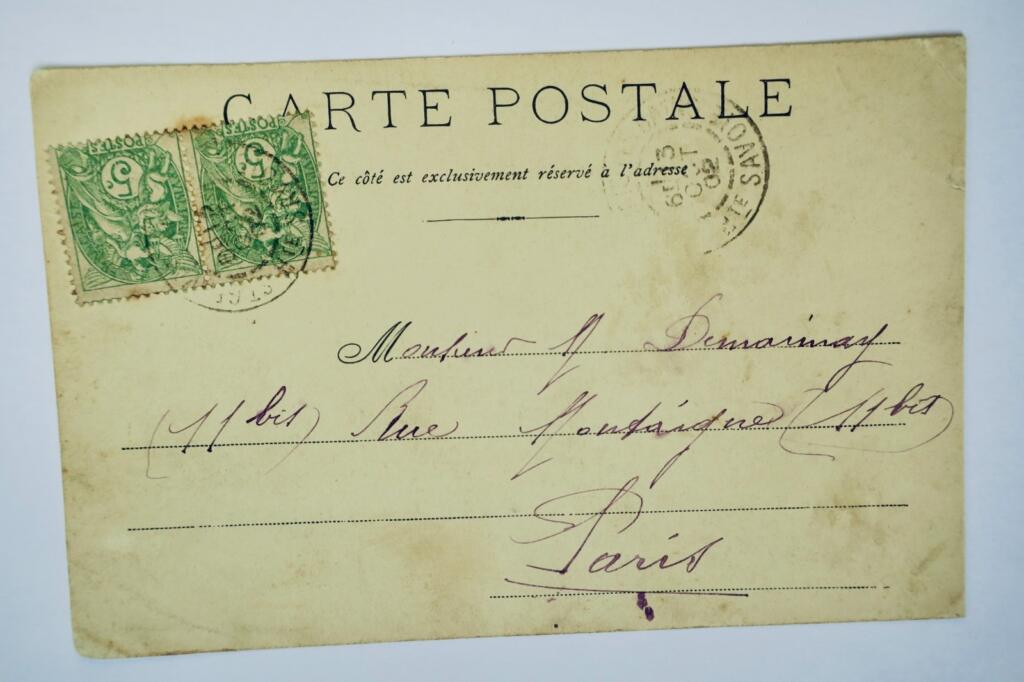 CARTE POSTALE
Ce côté est exclusivement réservé à l'adresse
POSTES 5c
POSTES 5c
3
OCT
02
TE SAVOI
Monsieur M Demainay
(11 bis) Rue Montaigne (11 bis)
Paris